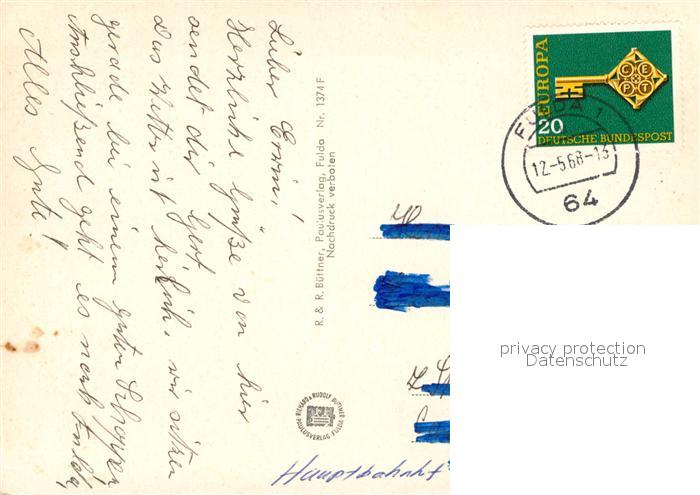 Lieber Erwin!
Herzliche Grüße von hier
sendet dir Gert.
Das Wetter ist herrlich, wir sitzen
gerade bei einem guten Schoppen
Anschließend geht es nach Fulda,
Alles Gute!
R. & R. Büttner, Paulusverlag, Fulda Nr. 1374 F
Nachdruck verboten
RICHARD & RUDOLF BÜTTNER
PAULUSVERLAG FULDA
EUROPA
CEPT
20
DEUTSCHE BUNDESPOST
FULDA 1
12.-5.68-13
64
privacy protection
Datenschutz
Hauptbahnhf